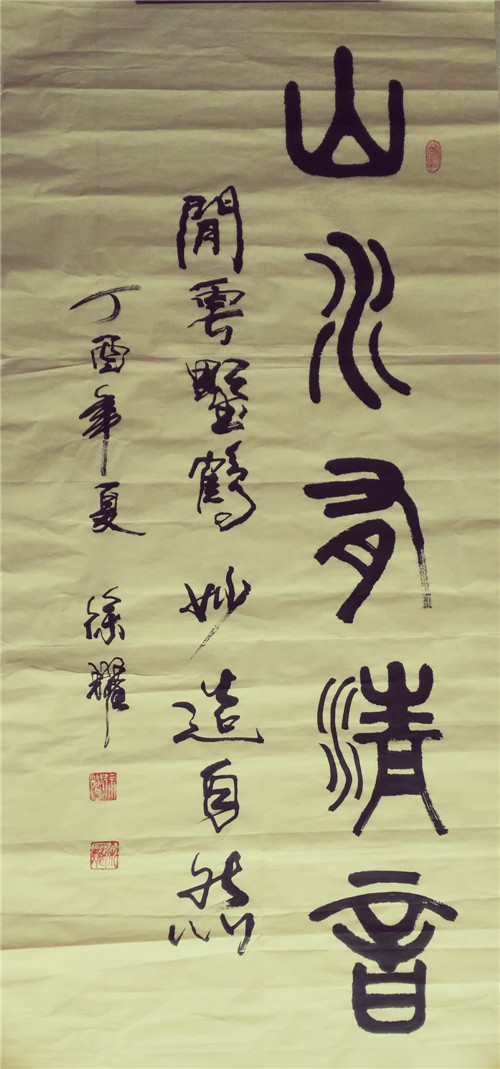 山水有清音
閒雲壑鶴妙造自然
丁酉年夏 徐耀